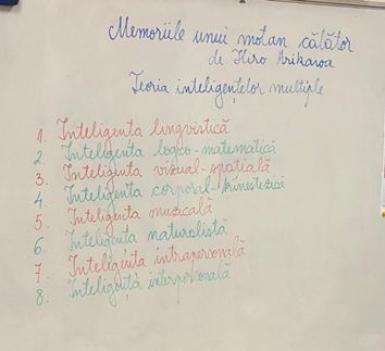 Memoriile unui motan călător
de Hiro Arikawa
Teoria inteligențelor multiple
1. Inteligența lingvistică
2. Inteligența logico-matematică
3. Inteligența vizual-spațială
4. Inteligența corporal-kinestezică
5. Inteligența muzicală
6. Inteligența naturalistă
7. Inteligența intrapersonală
8. Inteligența interpersonală